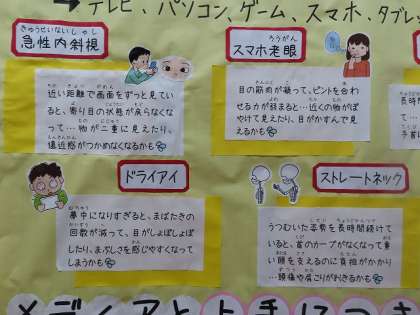 →テレビ、パソコン、ゲーム、スマホ、タブレ
きゅうせいないしゃし
急性内斜視
近い距離で画面をずっと見てい
ると、寄り目の状態が戻らなくな
って…物が二重に見えたり、
遠近感がつかめなくなるかも
ろうがん
スマホ老眼
目の筋肉が凝って、ピントを合わ
せる力が弱まると…近くの物がぼ
やけて見えたり、目がかすんで見
えるかも
ドライアイ
夢中になりすぎると、まばたきの
回数が減って、目がしょぼしょぼ
したり、まぶしさを感じやすくなって
しまうかも
ストレートネック
うつむいた姿勢を長時間続けて
いると、首のカーブがなくなって重
い頭を支えるのに負担がかかり
…頭痛や肩こりがおきるかも
メディアと上手につき